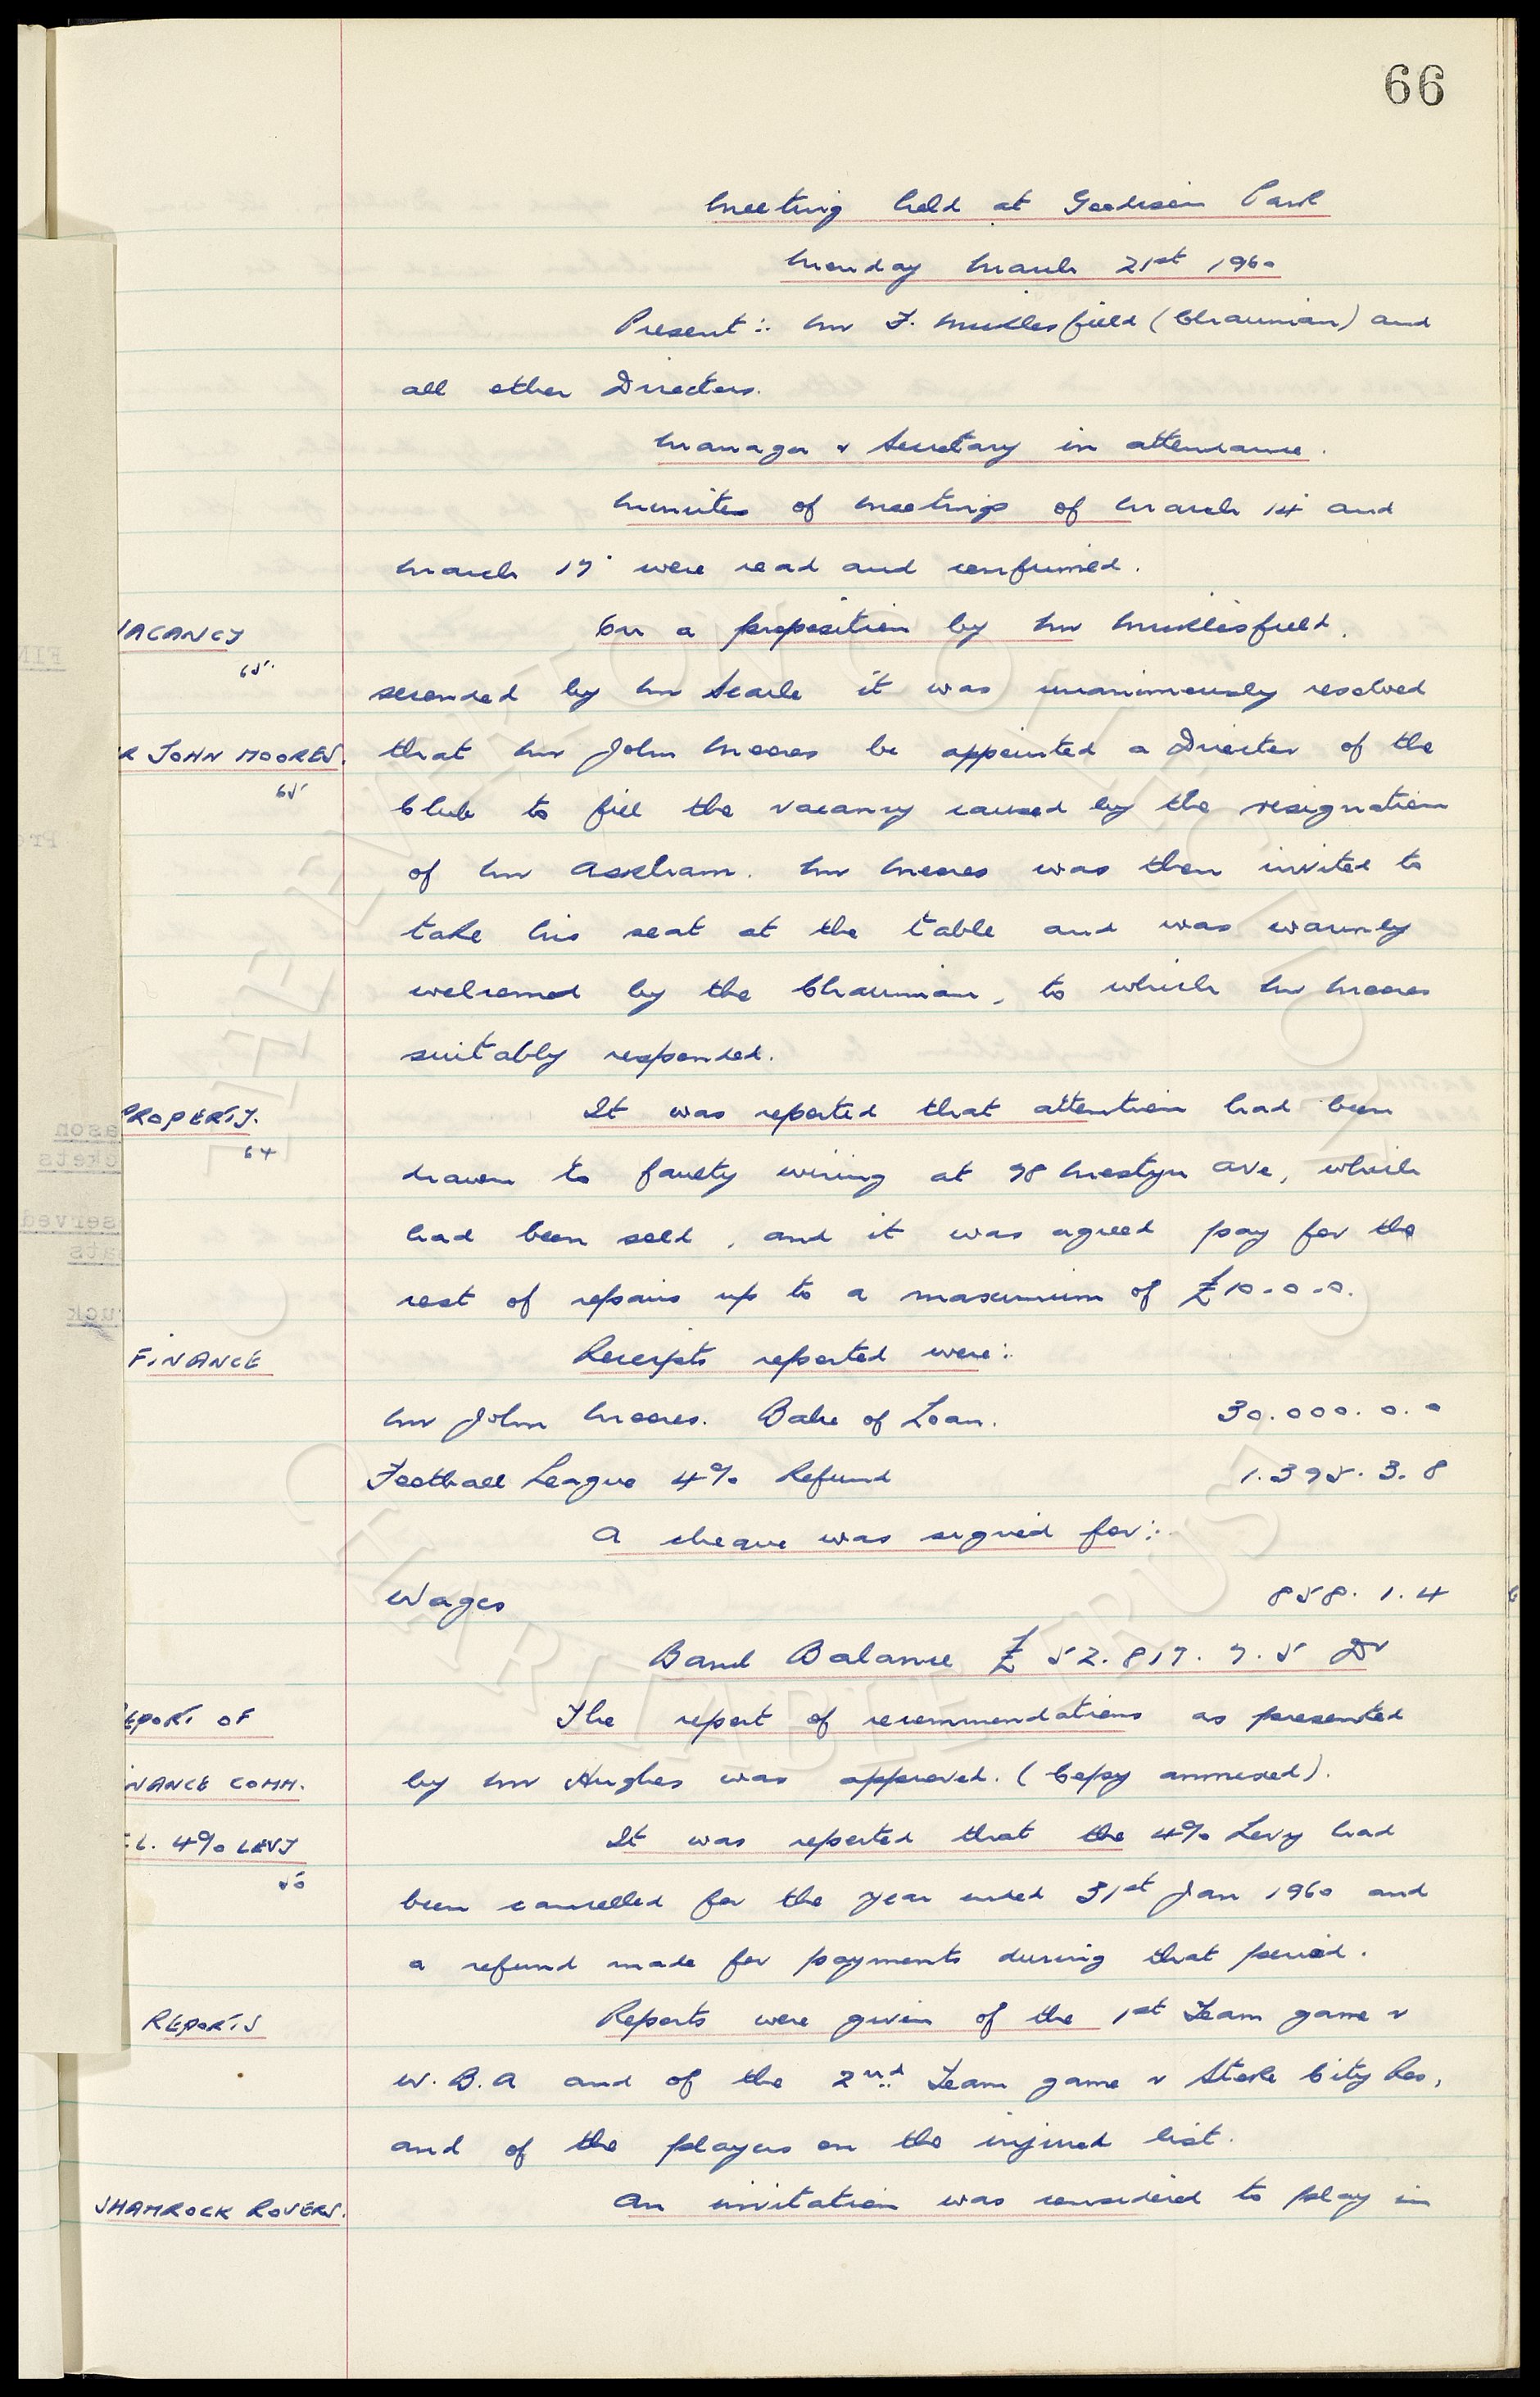 66
Meeting held at Goodison Park
Monday March 21st 1960
Present:. Mr F. Micklesfield (Chairman) and
all other Directors.
Manager & Secretary in attendance.
Minutes of meetings of March 14 and
March 17 were read and confirmed.
VACANCY
65.
On a proposition by Mr Micklesfield,
seconded by Mr Searle it was unanimously resolved
R JOHN MOORES.
65
that Mr John Moores be appointed a Director of the
Club to fill the vacancy caused by the resignation
of Mr Askham. Mr Moores was then invited to
take his seat at the table and was warmly
welcomed by the Chairman, to which Mr Moores
suitably responded.
PROPERTY.
64
It was reported that attention had been
drawn to faulty wiring at 98 Mostyn Ave, which
had been sold, and it was agreed pay for the
cost of repairs up to a maximum of £10-0-0.
FINANCE
Receipts reported were:.
Mr John Moores. Balce of Loan. 30.000.0.0
Football League 4% Refund 1.395.3.8
A cheque was signed for:.
Wages 858.1.4
Bank Balance £52.817.7.5 Dr
EPORT OF
The report of recommendations as presented
NANCE COMM.
by Mr Hughes was approved. (Copy annexed).
.L. 4% LEVY
It was reported that the 4% Levy had
been cancelled for the year ended 31st Jan 1960 and
a refund made for payments during that period.
REPORTS
Reports were given of the 1st Team game v
W.B.A and of the 2nd Team game v Stoke City Res,
and of the players on the injured list.
SHAMROCK ROVERS.
An invitation was considered to play in